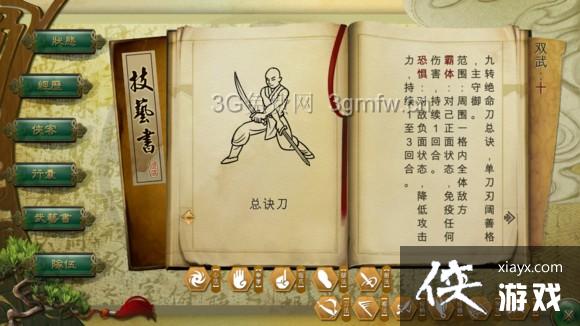 狀態
經歷
俠客
行囊
武藝書
隊伍
技藝書
总诀刀
双武:十
九转绝命刀总诀,单刀刃阔善格
,主守御。
范围:周围一格内全体敌方
霸体:对己正面状态,免疫任何
伤害,持续1回合。
恐惧:对敌负面状态,降低攻击
力,持续1至3回合。
3G免费网 3gmfw.com
侠
xiayx.com
游戏